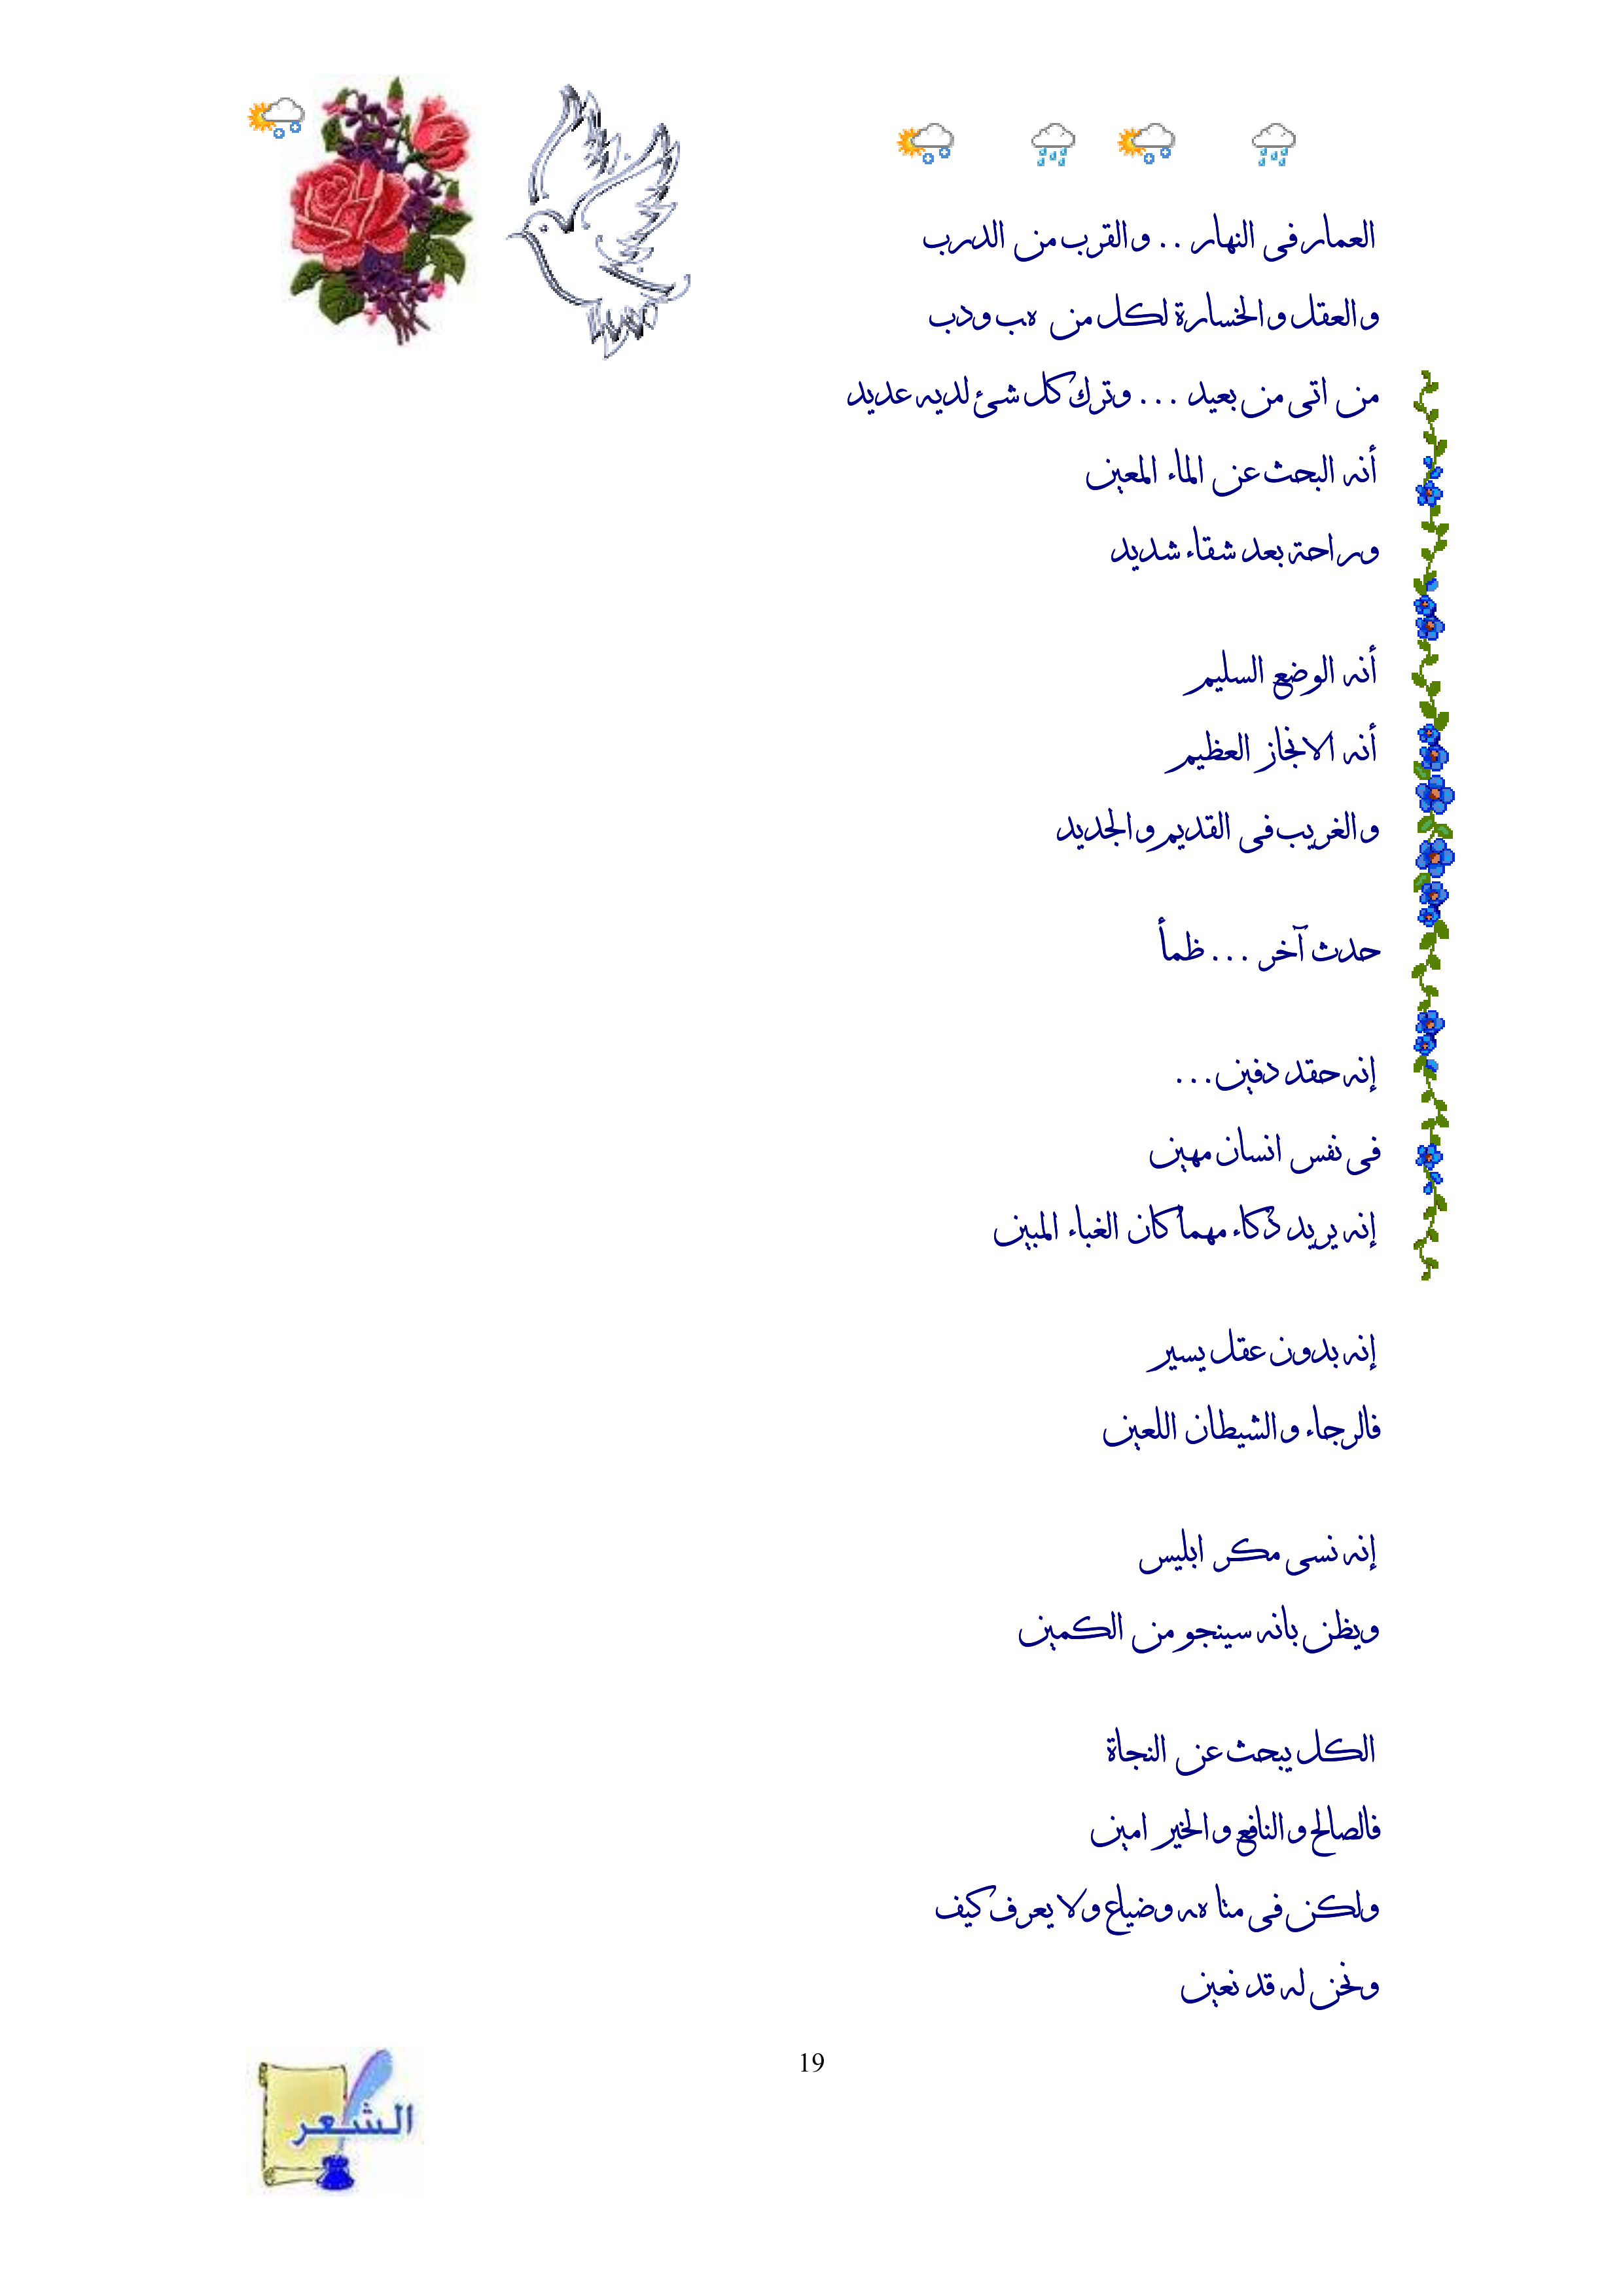 العمار فى النهار .. والقرب من الدرب
والعقل والخسارة لكل من هب ودب
من اتى من بعيد ... وترك كل شئ لديه عديد
أنه البحث عن الماء المعين
وراحة بعد شقاء شديد
أنه الوضع السليم
أنه الانجاز العظيم
والغريب فى القديم والجديد
حدث آخر ... ظمأ
إنه حقد دفين...
فى نفس انسان مهين
إنه يريد ذكاء مهما كان الغباء المبين
إنه بدون عقل يسير
فالرجاء والشيطان اللعين
إنه نسى مكر ابليس
ويظن بانه سينجو من الكمين
الكل يبحث عن النجاة
فالصالح والنافع والخير امين
ولكن فى متاهه وضياع ولا يعرف كيف
ونحن له قد نعين
19
الشعر